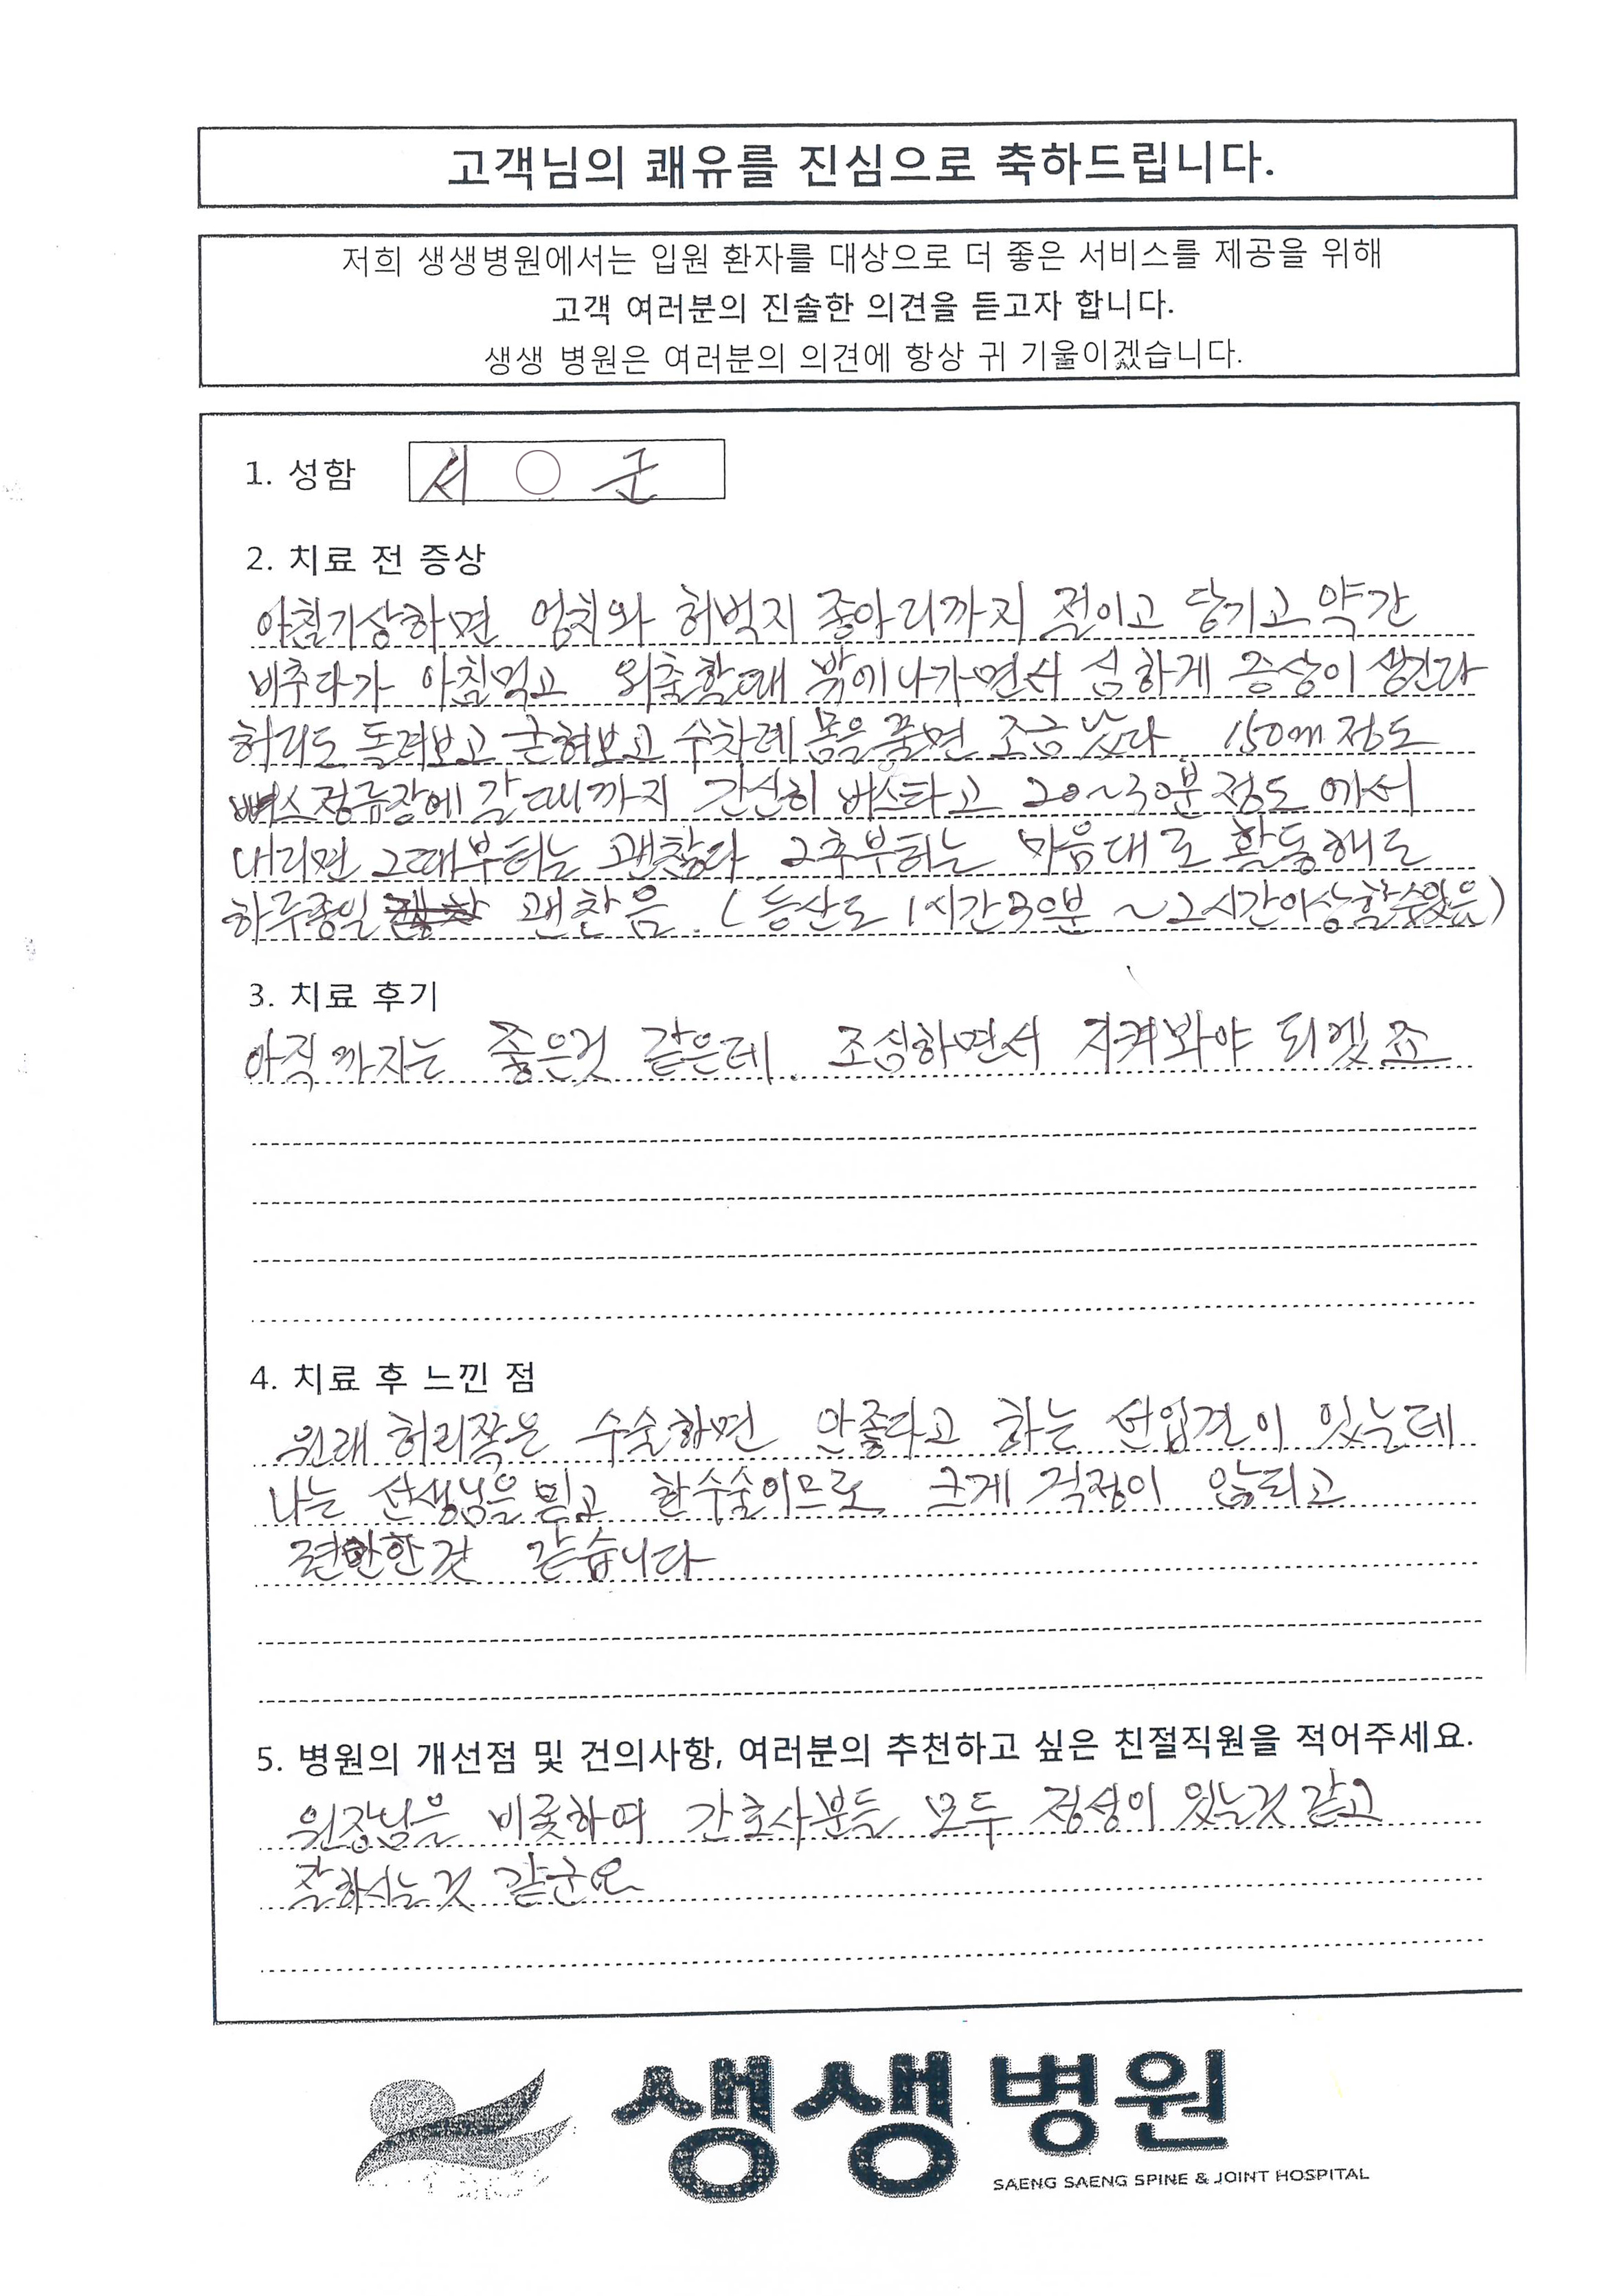 고객님의 쾌유를 진심으로 축하드립니다.
저희 생생병원에서는 입원 환자를 대상으로 더 좋은 서비스를 제공을 위해
고객 여러분의 진솔한 의견을 듣고자 합니다.
생생 병원은 여러분의 의견에 항상 귀 기울이겠습니다.
1. 성함 서 ○ 군
2. 치료 전 증상
아침기상하면 엉치와 허벅지 종아리까지 절이고 당기고 약간
비추다가 아침먹고 외출할때 밖에나가면서 심하게 증상이 생긴다
허리도 돌려보고 굳혀보고 수차례 몸을 풀면 조금 낫다 150m 정도
버스정류장에 갈때까지 간신히 버스타고 20~30분 정도 에서
내리면 그때부터는 괜찮다. 2추부터는 마음대로 활동해도
하루종일 괜찬음. (등산도 1시간30분 ~2시간이상할수있음)
3. 치료 후기
아직까지는 좋은것 같은데. 조심하면서 지켜봐야 되겠죠
4. 치료 후 느낀 점
원래 허리쪽은 수술하면 안좋다고 하는 선입견이 있는데
나는 선생님을 믿고 한수술이므로 크게 걱정이 않되고
편안한것 같습니다
5. 병원의 개선점 및 건의사항, 여러분의 추천하고 싶은 친절직원을 적어주세요.
원장님을 비롯하여 간호사분들 모두 정성이 있는것 같고
잘하시는것 같군요
생생병원
SAENG SAENG SPINE & JOINT HOSPITAL